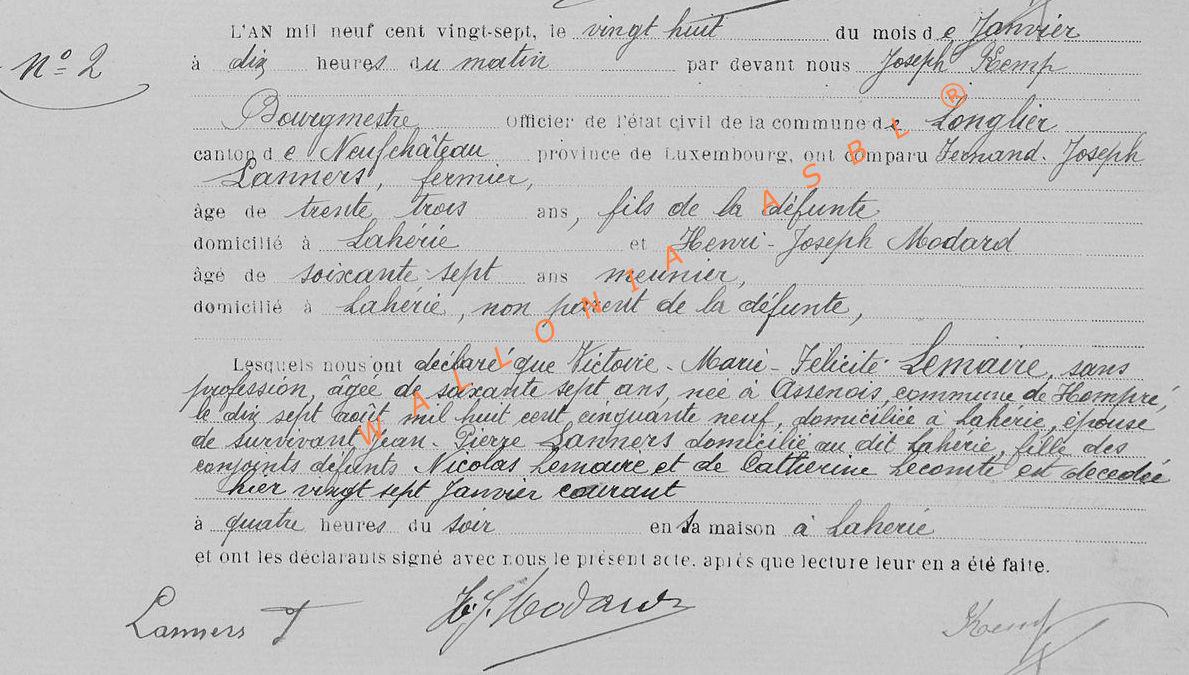 L'AN mil neuf cent vingt-sept, le vingt huit du mois de Janvier
N° 2
à dix heures du matin par devant nous Joseph Kemp
Bourgmestre Officier de l'état civil de la commune de Longlier
canton de Neufchâteau province de Luxembourg, ont comparu Fernand-Joseph
Lanners, fermier,
âge de trente trois ans, fils de la défunte
domicilié à Lahérie et Henri-Joseph Modard
âgé de soixante-sept ans meunier,
domicilié à Lahérie, non parent de la défunte,
Lesquels nous ont déclaré que Victoire-Marie-Félicité Lemaire, sans
profession, âgée de soixante sept ans, née à Assenois, commune de Hompré,
le dix sept août mil huit cent cinquante neuf, domiciliée à Lahérie, épouse
de survivant Jean-Pierre Lanners domicilié au dit Lahérie, fille des
conjoints défunts Nicolas Lemaire et de Catherine Lecomte est décédée
hier vingt sept Janvier courant
à quatre heures du soir en sa maison à Lahérie
et ont les déclarants signé avec nous le présent acte, après que lecture leur en a été faite.
Lanners F H.J. Modard Kemp
WALLONIA ASBL ®